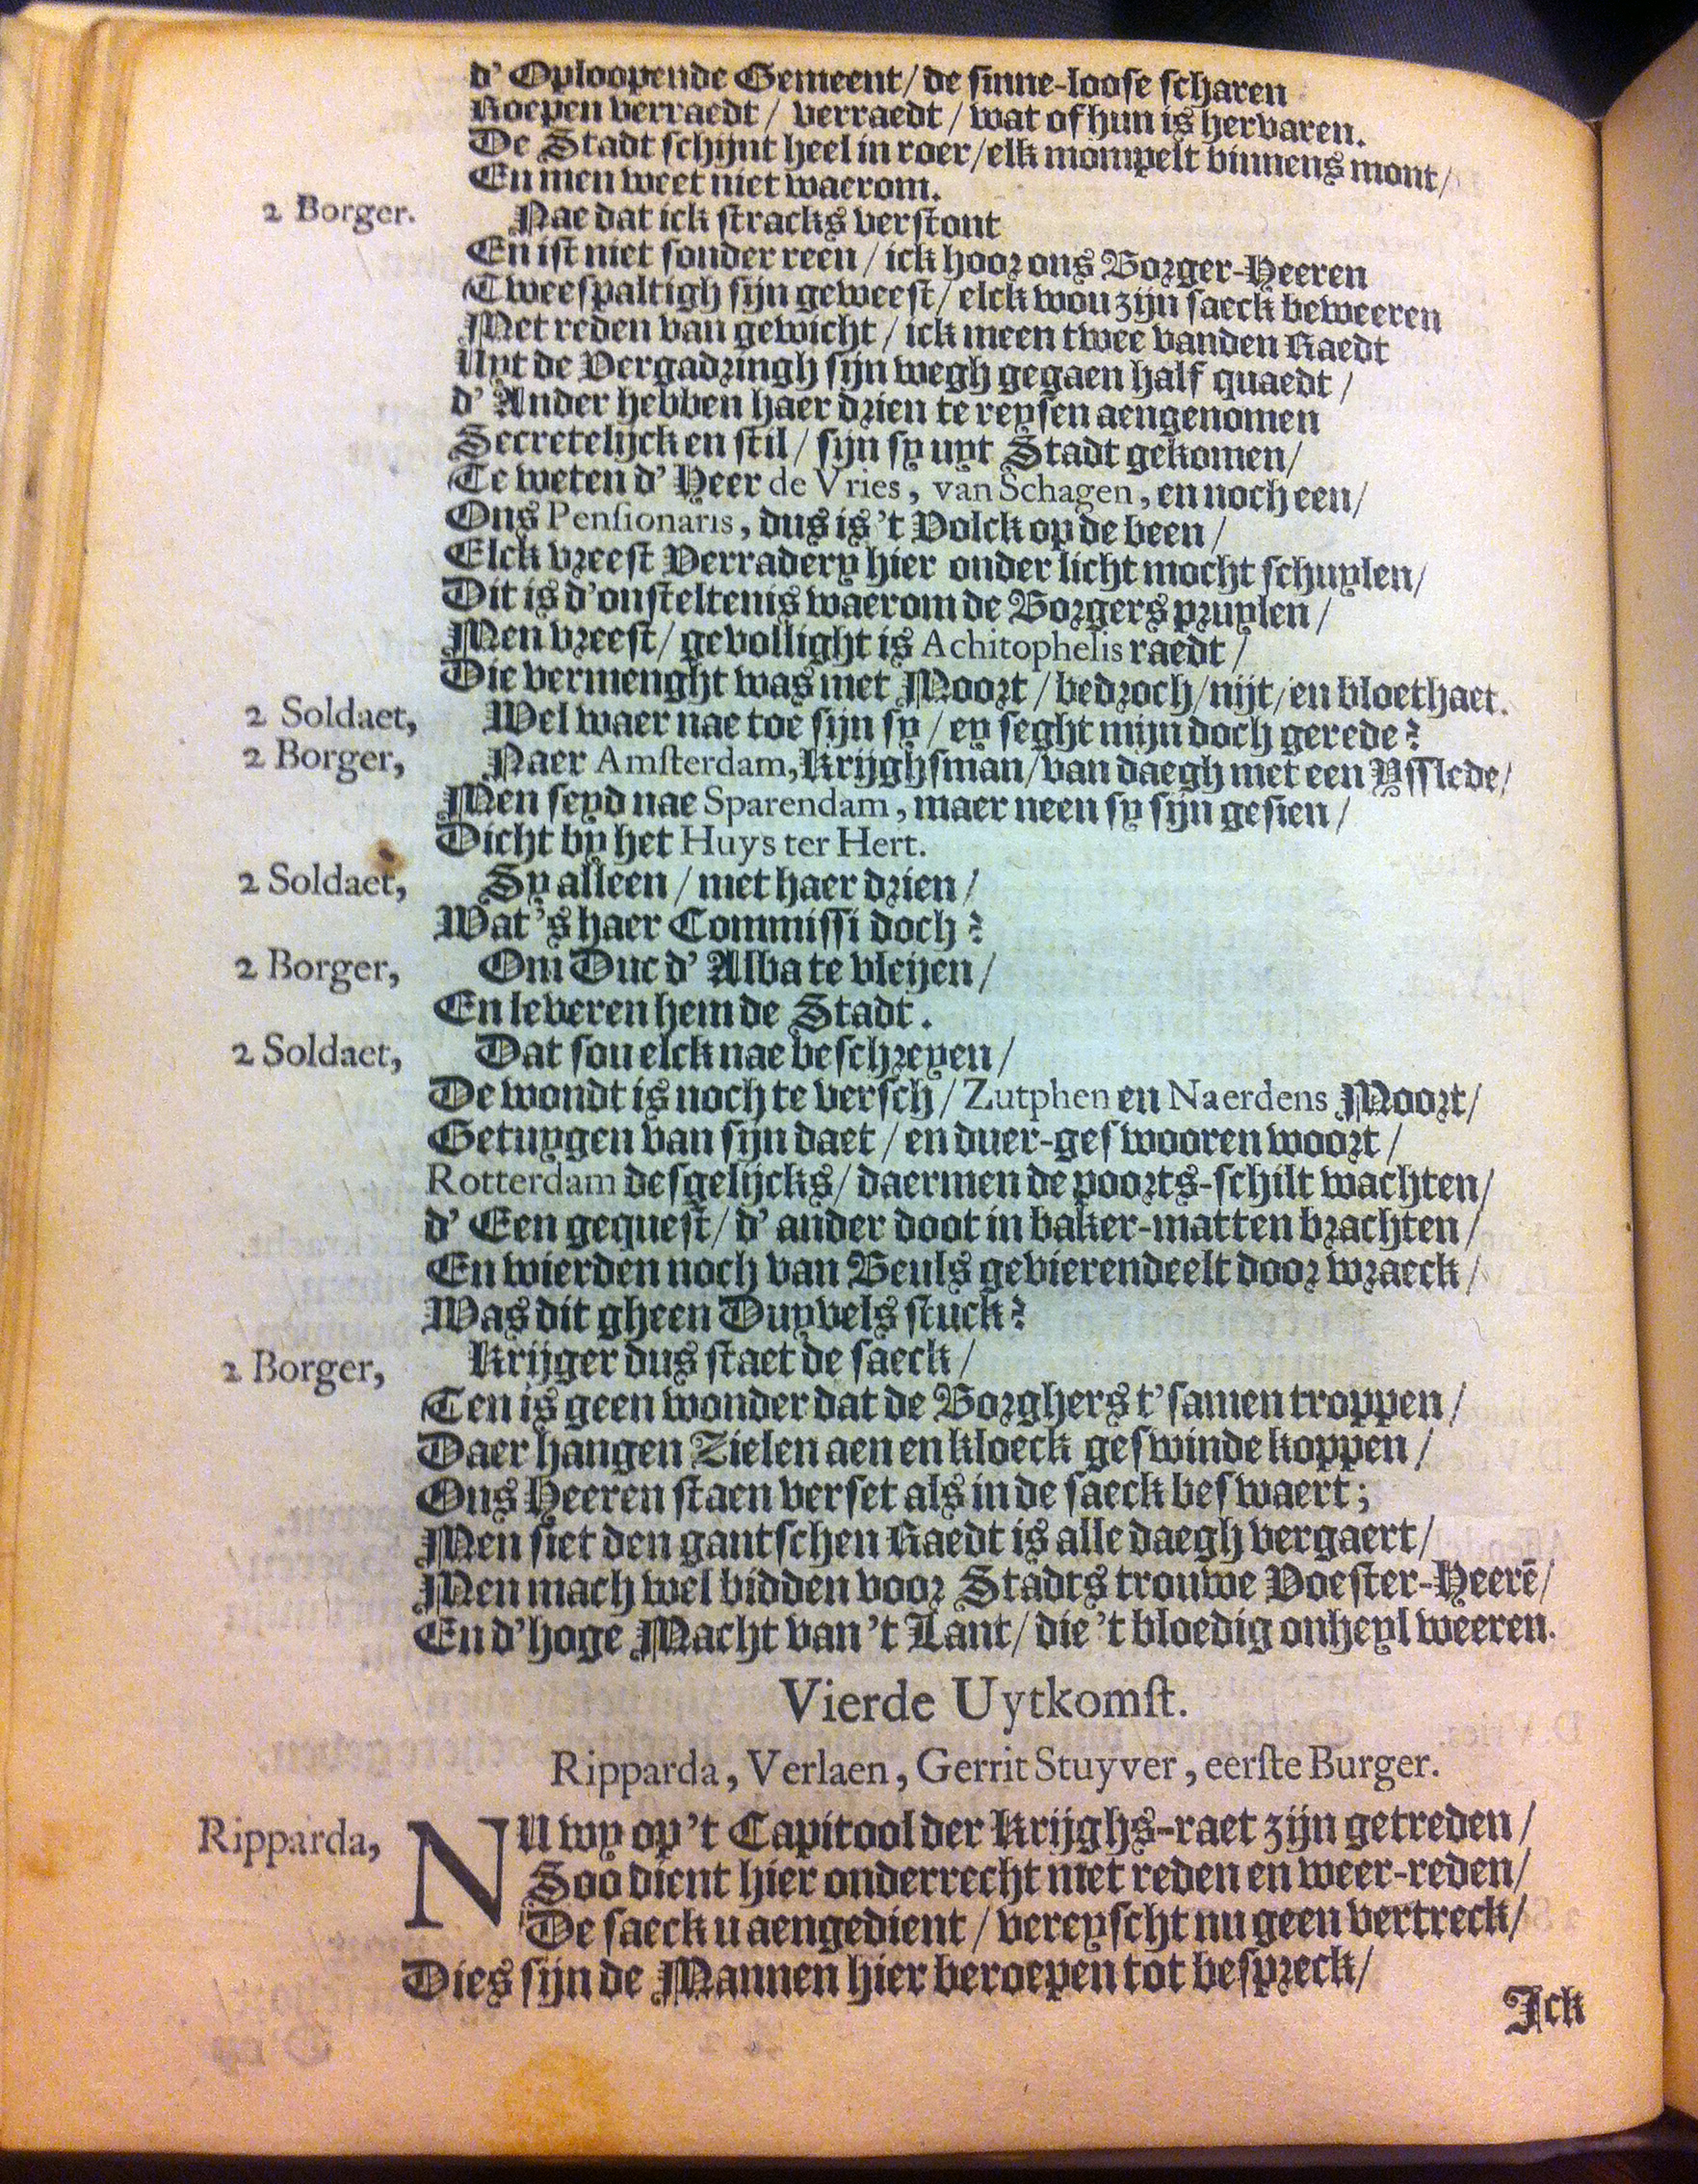 d' Oploopende Gemeent/ de sinne-loose scharen
Roepen verraedt/ verraedt/ wat of hun is hervaren.
De Stadt schijnt heel in roer/ elk mompelt binnens mont/
En men weet niet waerom.
2 Borger. Nae dat ick stracks verstont
En ist niet sonder reen/ ick hoor ons Borger-Heeren
Tweespaltigh sijn geweest/ elck wou zijn saeck beweeren
Met reden van gewicht/ ick meen twee vanden Raedt
Uyt de Vergadringh sijn wegh gegaen half quaedt/
d' Ander hebben haer drien te reysen aengenomen
Secretelijck en stil/ sijn sy uyt Stadt gekomen/
Te weten d' Heer de Vries, van Schagen, en noch een/
Ons Pensionaris, dus is 't Volck op de been/
Elck vreest Verradery hier onder licht mocht schuylen/
Dit is d'onsteltenis waerom de Borgers pruylen/
Men vreest/ gevollight is Achitophelis raedt/
Die vermenght was met Moort/ bedroch/ nijt/ en bloethaet.
2 Soldaet, Wel waer nae toe sijn sy/ ey seght mijn doch gerede?
2 Borger, Naer Amsterdam, Krijghsman/ van daegh met een Ysslede/
Men seyd nae Sparendam, maer neen sy sijn gesien/
Dicht by het Huys ter Hert.
2 Soldaet, Sy alleen/ met haer drien/
Wat's haer Commissi doch?
2 Borger, Om Duc d' Alba te vleijen/
En leveren hem de Stadt.
2 Soldaet, Dat sou elck nae beschreyen/
De wondt is noch te versch/ Zutphen en Naerdens Moort/
Getuygen van sijn daet/ en duer-geswooren woort/
Rotterdam desgelijcks/ daermen de poorts-schilt wachten/
d' Een gequest/ d' ander doot in baker-matten brachten/
En wierden noch van Beuls gevierendeelt door wraeck/
Was dit gheen Duyvels stuck?
2 Borger, Krijger dus staet de saeck/
Ten is geen wonder dat de Borghers t'samen troppen/
Daer hangen Zielen aen en kloeck geswinde koppen/
Ons Heeren staen verset als in de saeck beswaert;
Men siet den gantschen Raedt is alle daegh vergaert/
Men mach wel bidden voor Stadts trouwe Voester-Heerē/
En d'hoge Macht van 't Lant/ die 't bloedig onheyl weeren.
Vierde Uytkomst.
Ripparda, Verlaen, Gerrit Stuyver, eerste Burger.
Ripparda, NU wy op 't Capitool der Krijghs-raet zijn getreden/
Soo dient hier onderrecht met reden en weer-reden/
De saeck u aengedient/ vereyscht nu geen vertreck/
Dies sijn de Mannen hier beroepen tot bespreck/
Ick